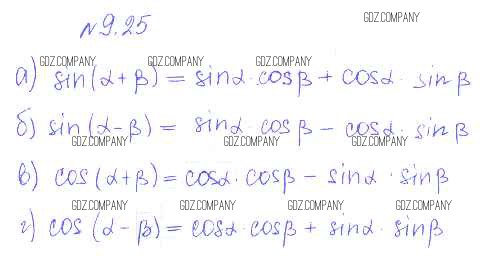 №9.25
GDZ.COMPANY
GDZ.COMPANY GDZ.COMPANY GDZ.COMPANY
а) sin(α+β) = sinα·cosβ + cosα·sinβ
б) sin(α-β) = sinα·cosβ - cosα·sinβ
GDZ.COMPANY GDZ.COMPANY GDZ.COMPANY
в) cos(α+β) = cosα·cosβ - sinα·sinβ
GDZ.COMPANY GDZ.COMPANY GDZ.COMPANY
г) cos(α-β) = cosα·cosβ + sinα·sinβ